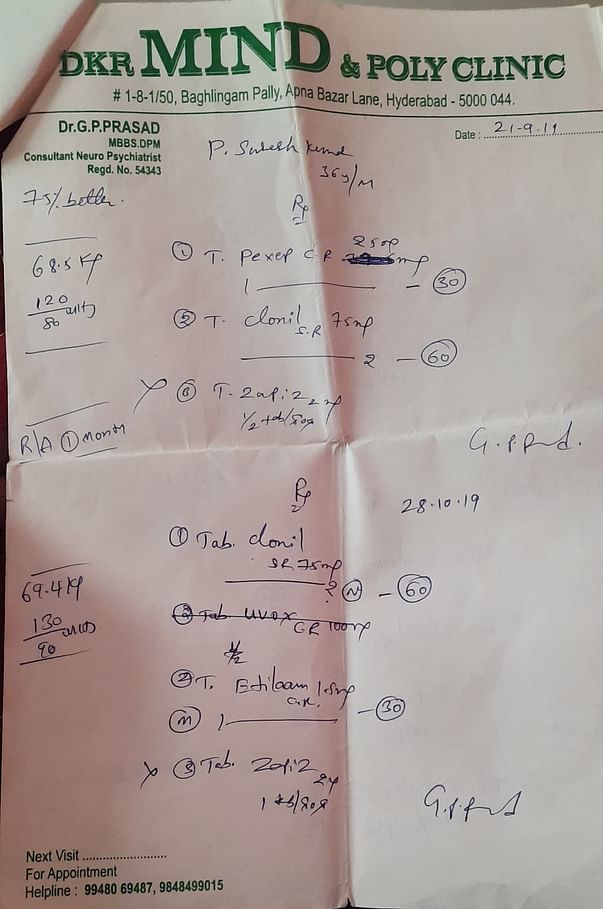 DKR MIND & POLY CLINIC
# 1-8-1/50, Baghlingam Pally, Apna Bazar Lane, Hyderabad - 5000 044.
Dr.G.P.PRASAD
MBBS.DPM
Consultant Neuro Psychiatrist
Regd. No. 54343
Date : 21-9-19
P. Suresh Kumar
36y/M
75% better.
Rp
68.5 Kg
① T. Pexep CR 25mg
1 — 30
120/80
② T. Clonil S.R 75mg
2 — 60
③ T. Zapiz 2mg
1/2 tab/sos
R/A ① month
G.P.Prasad.
Rp
28.10.19
① Tab. Clonil
SR 75mg
2 N — 60
69.4 Kg
130/90
② Tab. Uvox CR 100mg
1/2
② T. Etilaam 1.5mg
M 1 — 30
③ Tab. Zapiz 2mg
1 tab/sos
G.P.Prasad
Next Visit ..........................
For Appointment
Helpline : 99480 69487, 9848499015